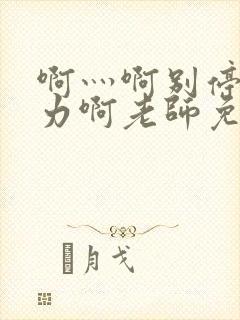 啊灬啊别停
力啊老师免
月戈